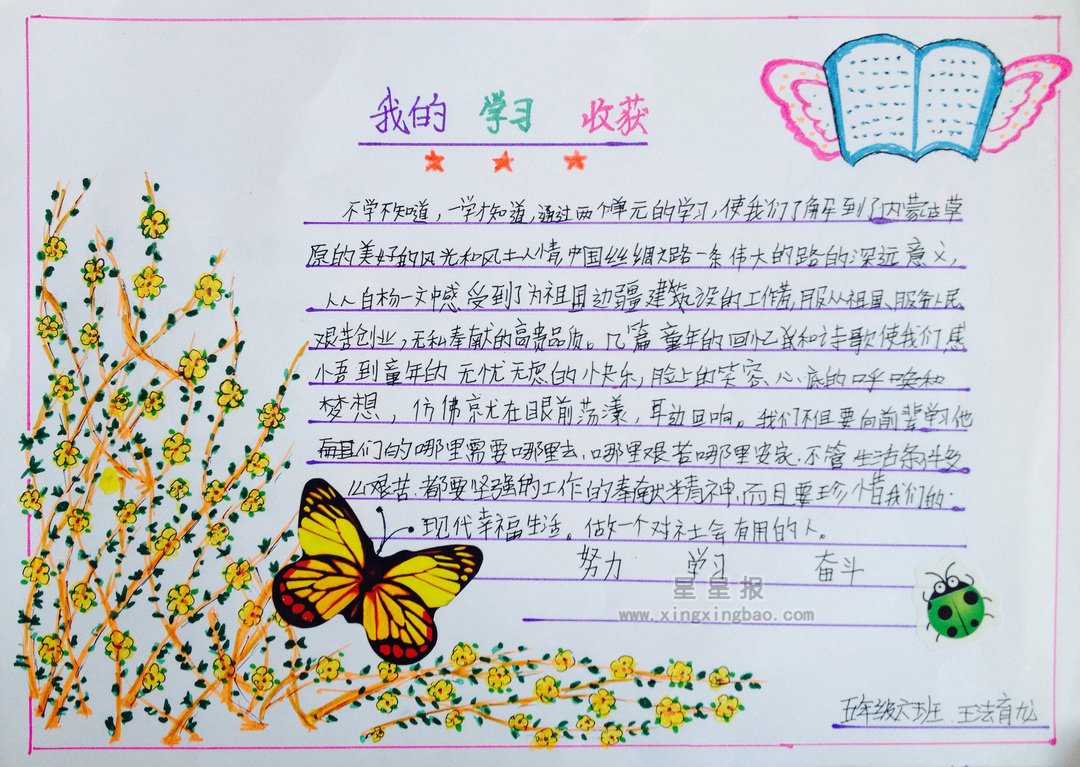 我的 学习 收获
不学不知道，一学才知道，通过两个单元的学习，使我们了解到了内蒙古草
原的美好的风光和风土人情，中国丝绸之路一条伟大的路的深远意义，
人人白杨一文中感受到了为祖国边疆建筑设的工作者，服从祖国、服务人民
艰苦创业，无私奉献的高贵品质。几篇童年的回忆和诗歌使我们感
悟到童年的无忧无虑的快乐，脸上的笑容、心底的呼唤和
梦想，仿佛就在眼前荡漾，耳边回响。我们不但要向前辈学习他
们的哪里需要哪里去，哪里艰苦哪里安家，不管生活条件多
么艰苦，都要坚强的工作的奉献精神，而且要珍惜我们的
现代幸福生活。做一个对社会有用的人。
努力 学习 奋斗
星星报
www.xingxingbao.com
五年级六班 王法育九